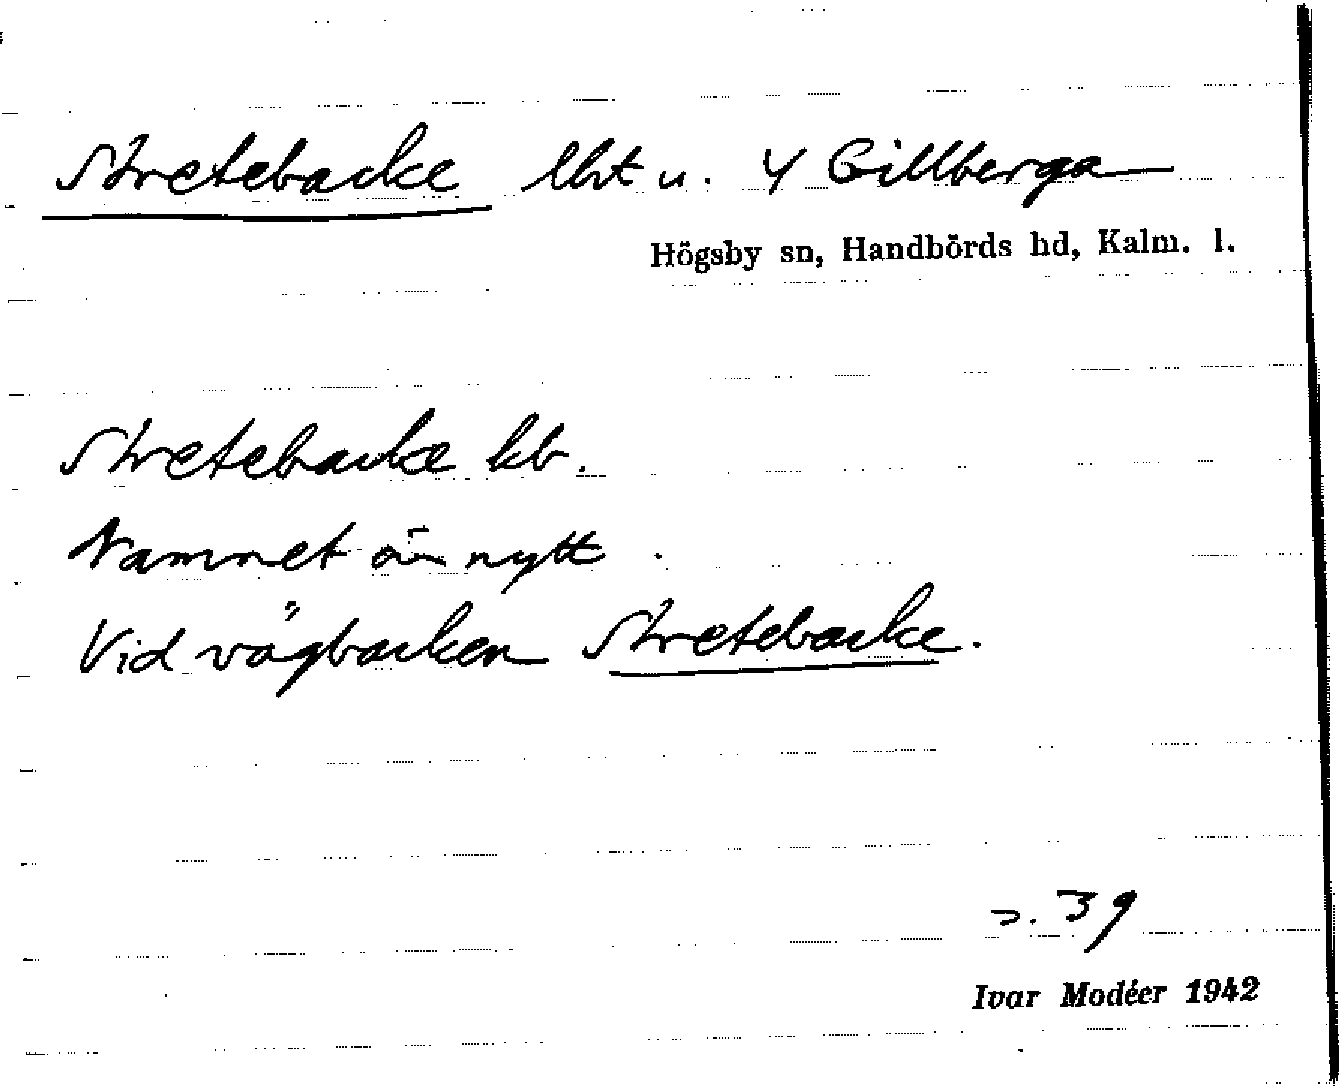 Stretebacke lht u. Y Gillberga
Högsby sn, Handbörds hd, Kalm. l.
Stretebacke kb.
Namnet är nytt.
Vid vägbacken Stretebacke.
s. 39
Ivar Modéer 1942